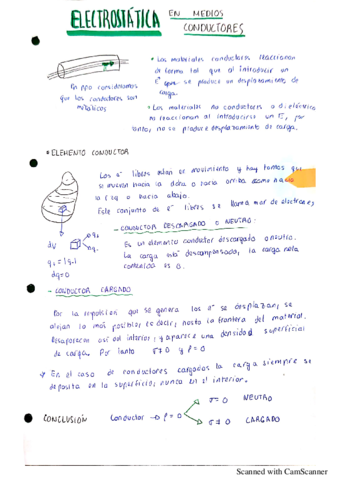 ELECTROSTÁTICA EN MEDIOS
CONDUCTORES
• Los materiales conductores reaccionan
de forma tal que al introducir un
E que se produce un desplazamiento de
carga.
En ppo consideramos
que los conductores son
metálicos
• Los materiales no conductores o dieléctrico
no reaccionan al introducirse un E, por
tanto, no se produce desplazamiento de carga.
* ELEMENTO CONDUCTOR
Los e⁻ libres están en movimiento y hay tantos que
se mueven hacia la dcha o hacia arriba como hacia
la izq o hacia abajo.
Este conjunto de e⁻ libres se llama mar de electrones
- CONDUCTOR DESCARGADO O NEUTRO:
Es un elemento conductor descargado o neutro.
La carga está descompensada, la carga neta
contenida es 0.
dV
dq=0
- CONDUCTOR CARGADO
Por la repulsión que se genera los e⁻ se desplazan; se
alejan lo más posible, es decir, hasta la frontera del material.
Desaparecen así del interior, y aparece una densidad superficial
de carga. Por tanto σ≠0 y ρ=0
En el caso de conductores cargados la carga siempre se
deposita en la superficie, nunca en el interior.
CONCLUSIÓN Conductor → ρ=0
σ=0 NEUTRO
σ≠0 CARGADO
Scanned with CamScanner